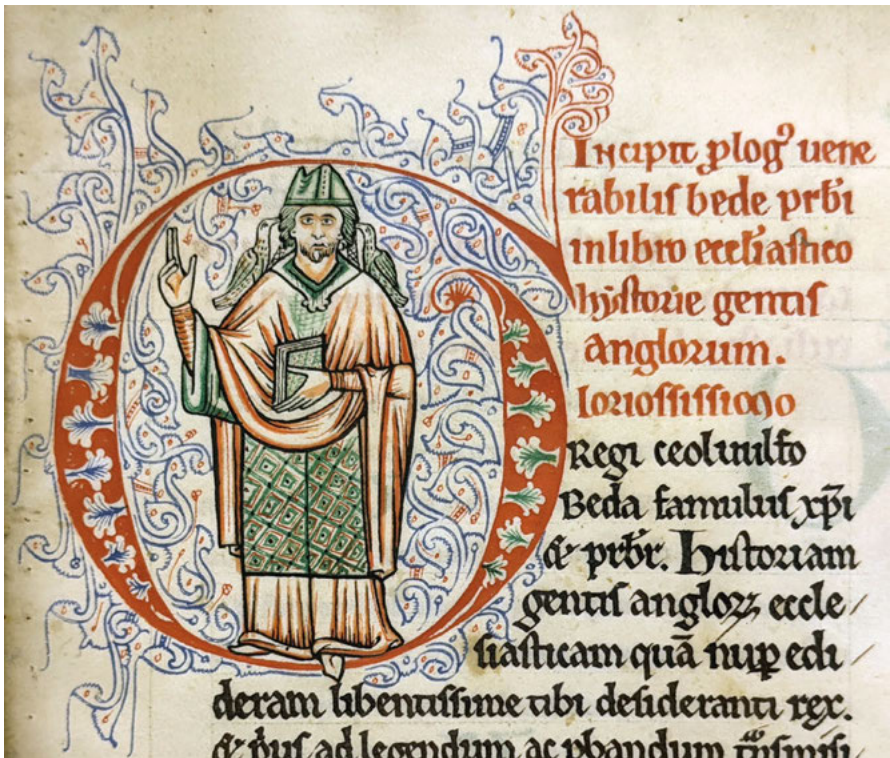 Incipit ꝓlogꝰ uene
rabilis bede prb̄i
in libro eccl̄iastico
hystorie gentis
anglorum.
Gloriosissimo
Regi ceoluulfo
Beda famulus xp̄i
& prb̄r. Historiam
gentis angloꝝ eccle/
siasticam quā nuꝑ edi/
deram libentissime tibi desideranti rex.
& pͥus ad legendum ac ꝓbandum